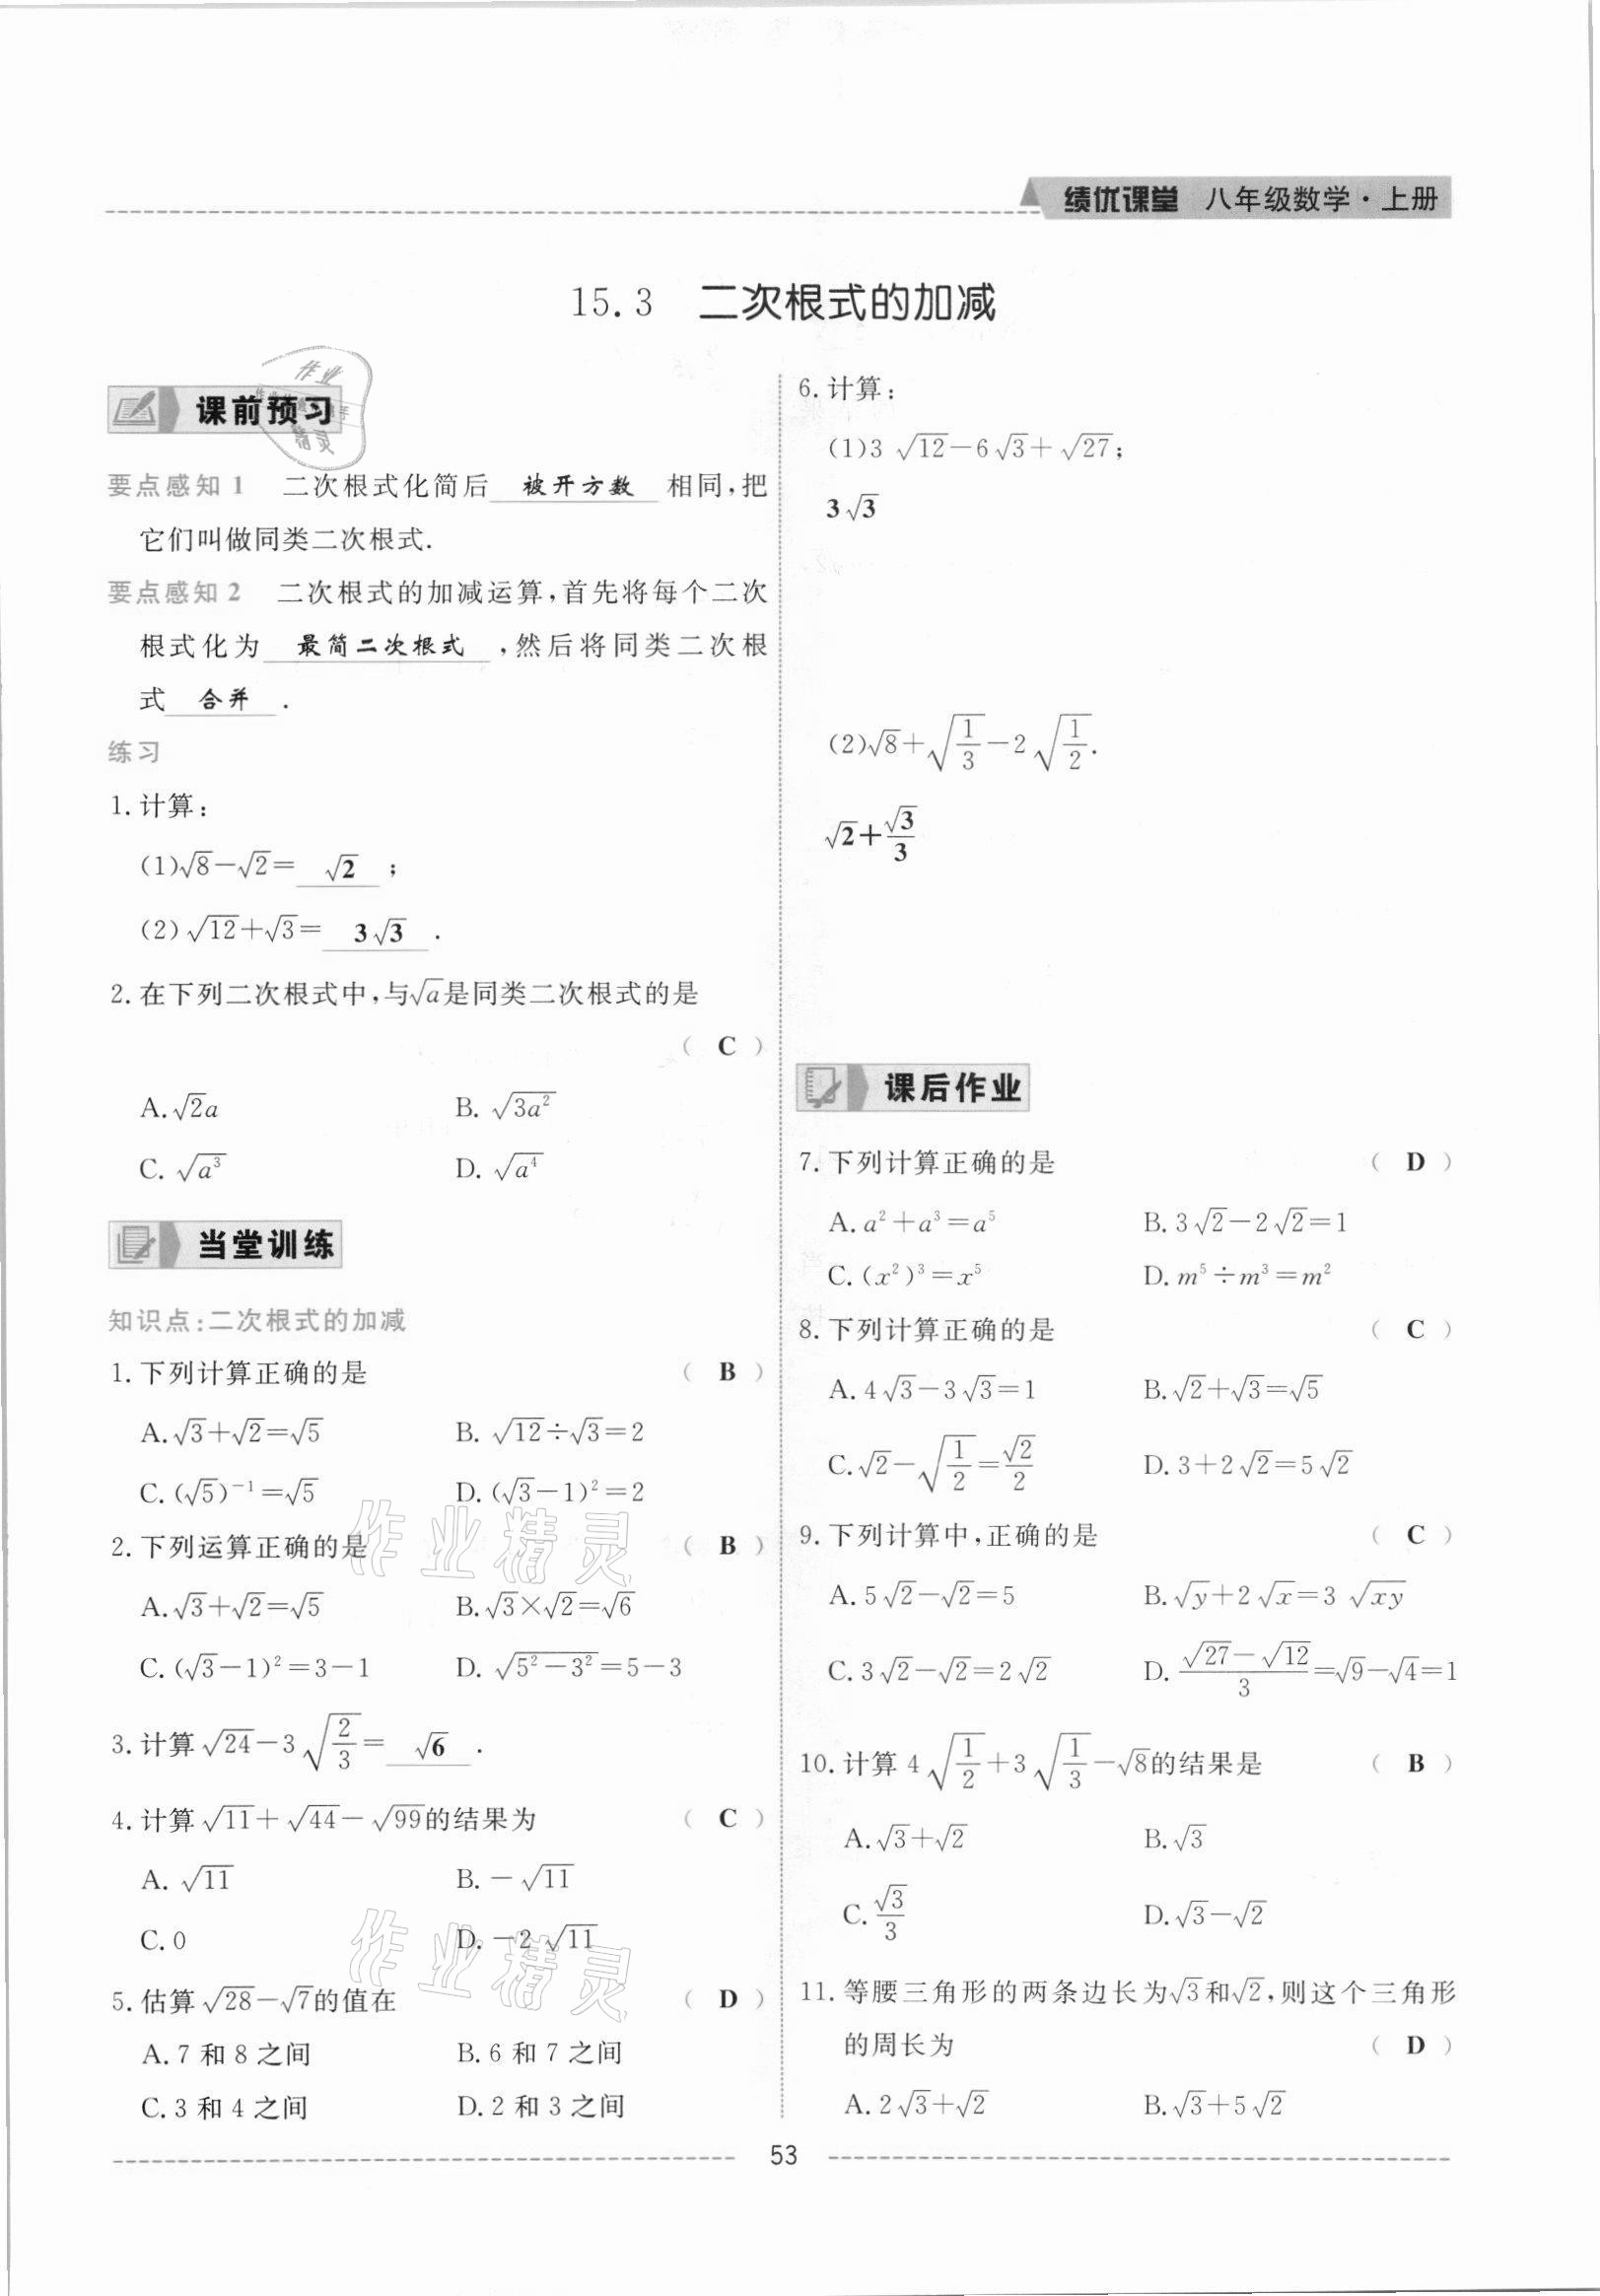 绩优课堂 八年级数学·上册
15.3 二次根式的加减
课前预习
要点感知1 二次根式化简后 被开方数 相同,把
它们叫做同类二次根式.
要点感知2 二次根式的加减运算,首先将每个二次
根式化为 最简二次根式 ,然后将同类二次根
式 合并 .
练习
1.计算:
(1)√8-√2= √2 ;
(2)√12+√3= 3√3 .
2.在下列二次根式中,与√a是同类二次根式的是
( C )
A.√2a B.√3a²
C.√a³ D.√a⁴
当堂训练
知识点:二次根式的加减
1.下列计算正确的是 ( B )
A.√3+√2=√5 B.√12÷√3=2
C.(√5)⁻¹=√5 D.(√3-1)²=2
2.下列运算正确的是 ( B )
A.√3+√2=√5 B.√3×√2=√6
C.(√3-1)²=3-1 D.√(5²-3²)=5-3
3.计算√24-3√(2/3)= √6 .
4.计算√11+√44-√99的结果为 ( C )
A.√11 B.-√11
C.0 D.-2√11
5.估算√28-√7的值在 ( D )
A.7和8之间 B.6和7之间
C.3和4之间 D.2和3之间
6.计算:
(1)3√12-6√3+√27;
3√3
(2)√8+√(1/3)-2√(1/2).
√2+√3/3
课后作业
7.下列计算正确的是 ( D )
A.a²+a³=a⁵ B.3√2-2√2=1
C.(x²)³=x⁵ D.m⁵÷m³=m²
8.下列计算正确的是 ( C )
A.4√3-3√3=1 B.√2+√3=√5
C.√2-√(1/2)=√2/2 D.3+2√2=5√2
9.下列计算中,正确的是 ( C )
A.5√2-√2=5 B.√y+2√x=3√xy
C.3√2-√2=2√2 D.(√27-√12)/3=√9-√4=1
10.计算4√(1/2)+3√(1/3)-√8的结果是 ( B )
A.√3+√2 B.√3
C.√3/3 D.√3-√2
11.等腰三角形的两条边长为√3和√2,则这个三角形
的周长为 ( D )
A.2√3+√2 B.√3+5√2
53
作业精灵
作业精灵
作业
精灵